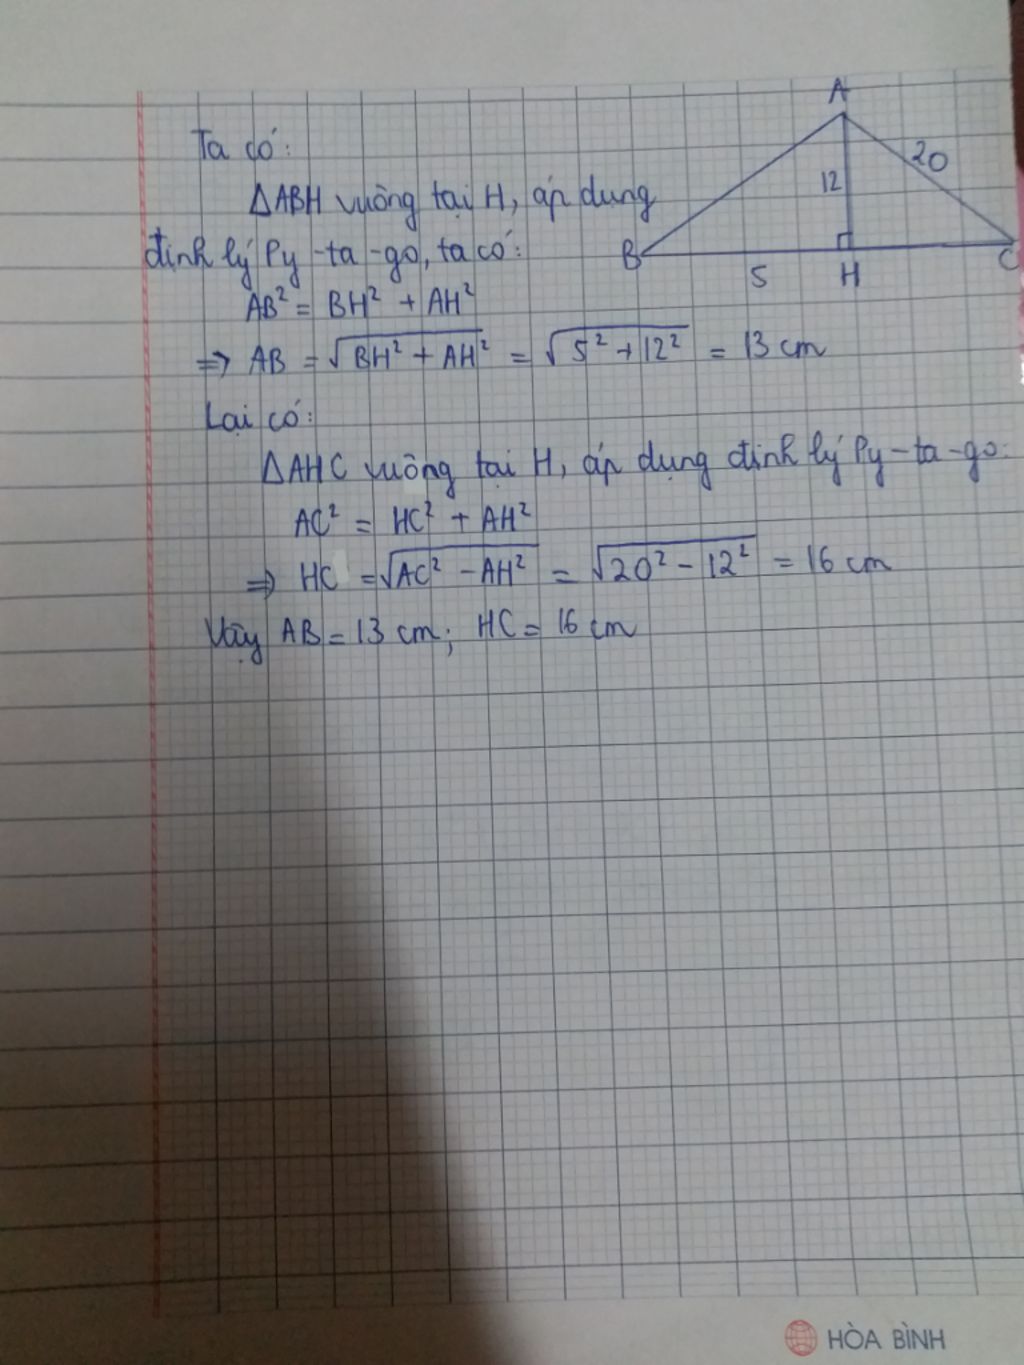 Ta có:
ΔABH vuông tại H, áp dụng
định lý Py-ta-go, ta có:
AB² = BH² + AH²
=> AB = √BH² + AH² = √5² + 12² = 13 cm
Lại có:
ΔAHC vuông tại H, áp dụng định lý Py-ta-go:
AC² = HC² + AH²
=> HC = √AC² - AH² = √20² - 12² = 16 cm
Vậy AB = 13 cm; HC = 16 cm
A
20
12
B
5
H
C
HÒA BÌNH